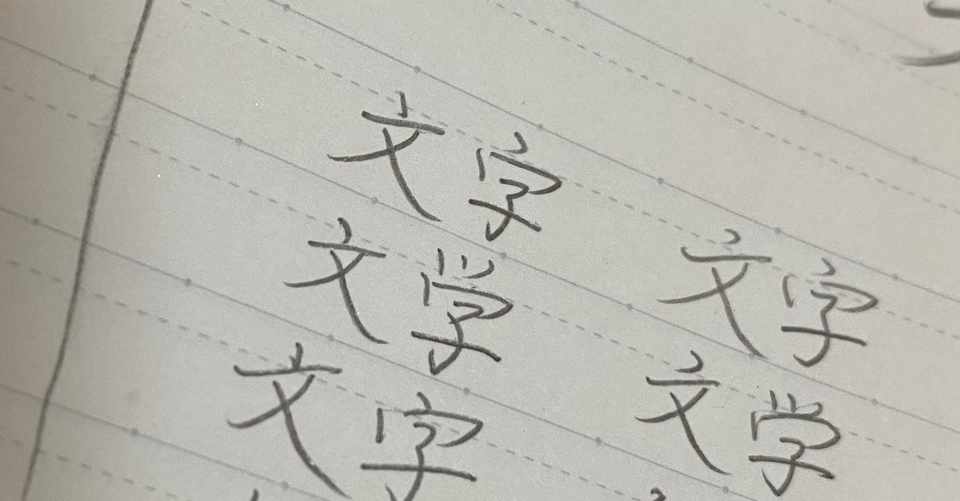 文字
文学
文字
文字
文学